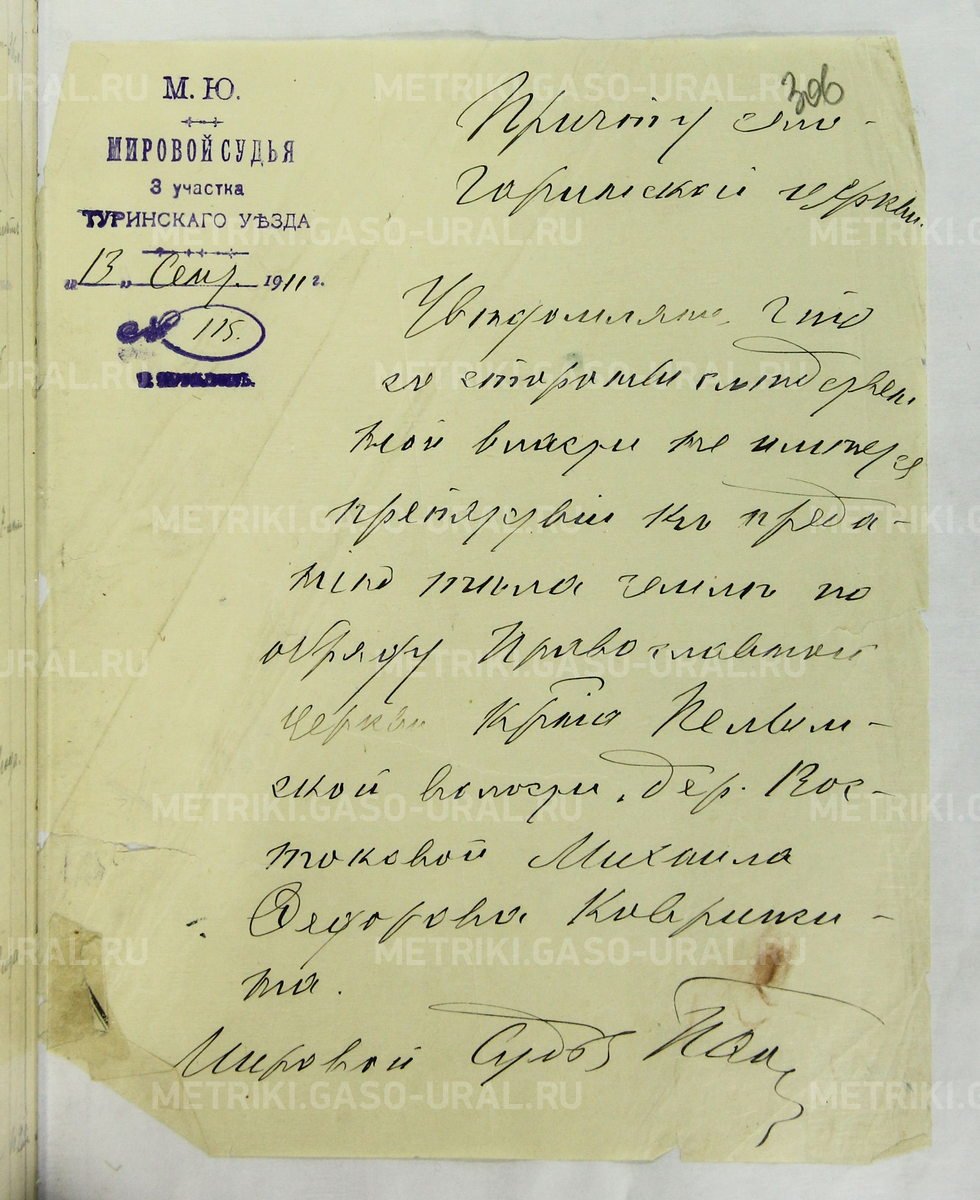 306
М. Ю.
МИРОВОЙ СУДЬЯ
3 участка
ТУРИНСКАГО УѢЗДА
„13„ Сент. 1911 г.
№ 115.
Причту
гаринской церкви.
Увѣдомляю, что
со стороны слѣдствен
ной власти не имѣется
препятствій къ преда-
нію тѣла землѣ по
обряду Православной
церкви кр-на Пелым-
ской волости, дер.
Михаила
Федорова Коврижи-
на.
Мировой Судья
METRIKI.GASO-URAL.RU